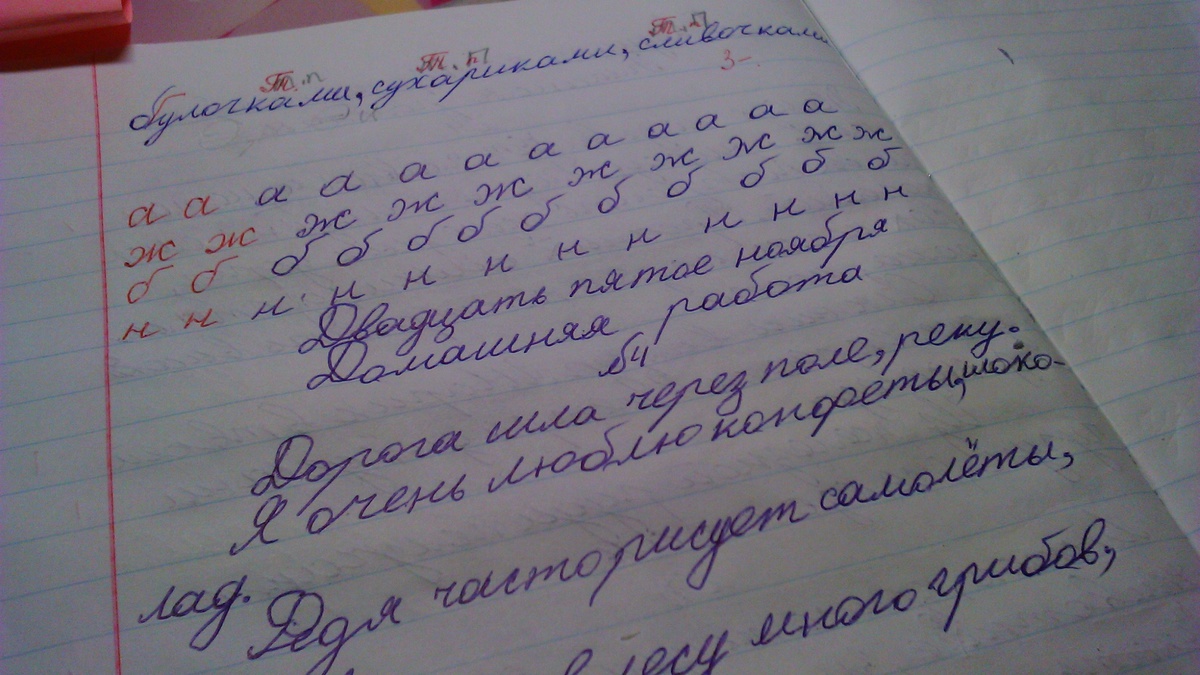 Т.п Т.П Т.П
булочками, сухариками, сливочками
3-.
а а а а а а а а а а а
ж ж ж ж ж ж ж ж ж ж
б б б б б б б б б б б
н н н н н н н н н н н
Двадцать пятое ноября
Домашняя работа
№4
Дорога шла через поле, реку.
Я очень люблю конфеты, шоко-
лад.
Федя часто рисует самолёты,
в лесу много грибов,